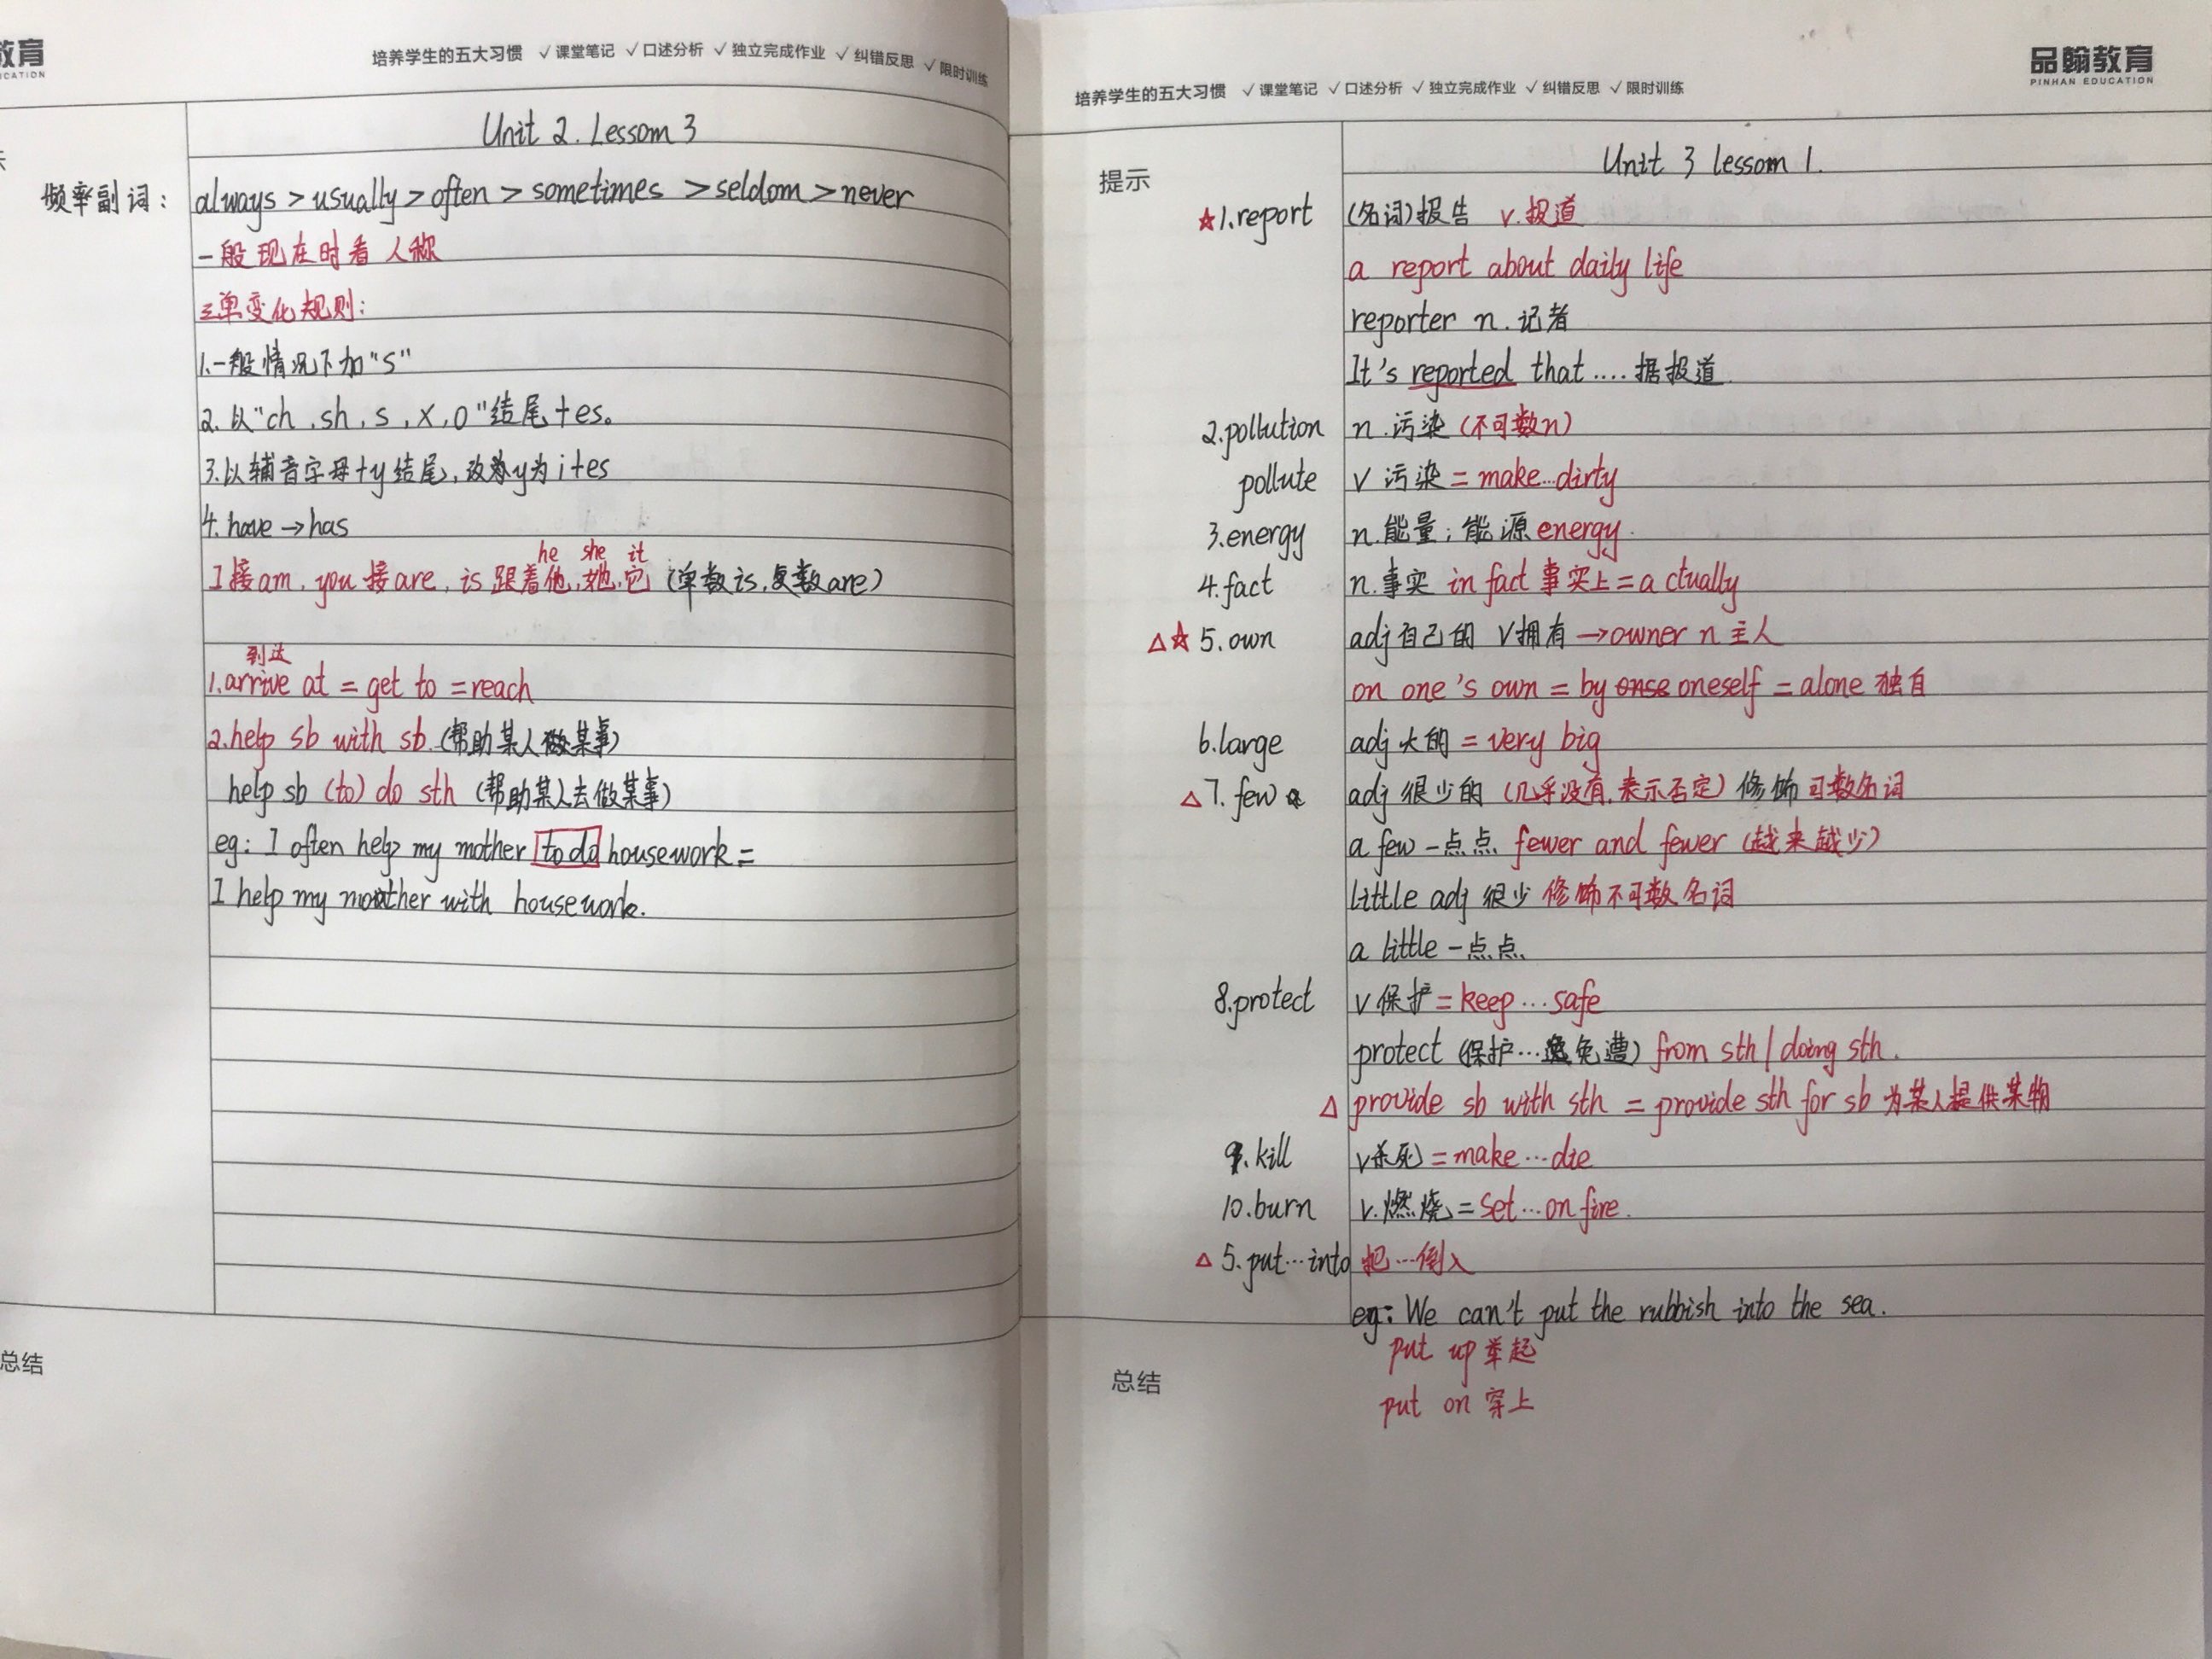 教育
CATION
培养学生的五大习惯 ✓课堂笔记 ✓口述分析 ✓独立完成作业 ✓纠错反思 ✓限时训练
Unit 2. Lessom 3
频率副词: always > usually > often > sometimes > seldom > never
一般现在时看人称
三单变化规则:
1.一般情况下加"s"
2.以"ch,sh,s,x,o"结尾+es。
3.以辅音字母+y结尾,改y为i+es
4.have→has
he she it
I接am,you接are,is跟着他,她,它(单数is,复数are)
到达
1.arrive at = get to = reach
2.help sb with sb.(帮助某人做某事)
help sb (to) do sth (帮助某人去做某事)
eg: I often help my mother to do housework =
I help my mother with housework.
总结
培养学生的五大习惯 ✓课堂笔记 ✓口述分析 ✓独立完成作业 ✓纠错反思 ✓限时训练
品翰教育
PINHAN EDUCATION
提示
Unit 3 lessom 1.
☆1.report (名词)报告 v.报道
a report about daily life
reporter n.记者
It's reported that....据报道
2.pollution n.污染(不可数n)
pollute v 污染=make...dirty
3.energy n.能量;能源energy.
4.fact n.事实 in fact事实上=actually
△☆5.own adj自己的 v拥有→owner n主人
on one's own = by oneself = alone 独自
6.large adj大的=very big
△7.few adj很少的(几乎没有,表示否定)修饰可数名词
a few一点点 fewer and fewer(越来越少)
little adj很少修饰不可数名词
a little一点点
8.protect v保护=keep...safe
protect(保护...免遭)from sth/doing sth.
△provide sb with sth = provide sth for sb 为某人提供某物
9.kill v杀死=make...die
10.burn v.燃烧=set...on fire.
△5.put...into 把...倒入
eg: We can't put the rubbish into the sea.
put up举起
put on穿上
总结